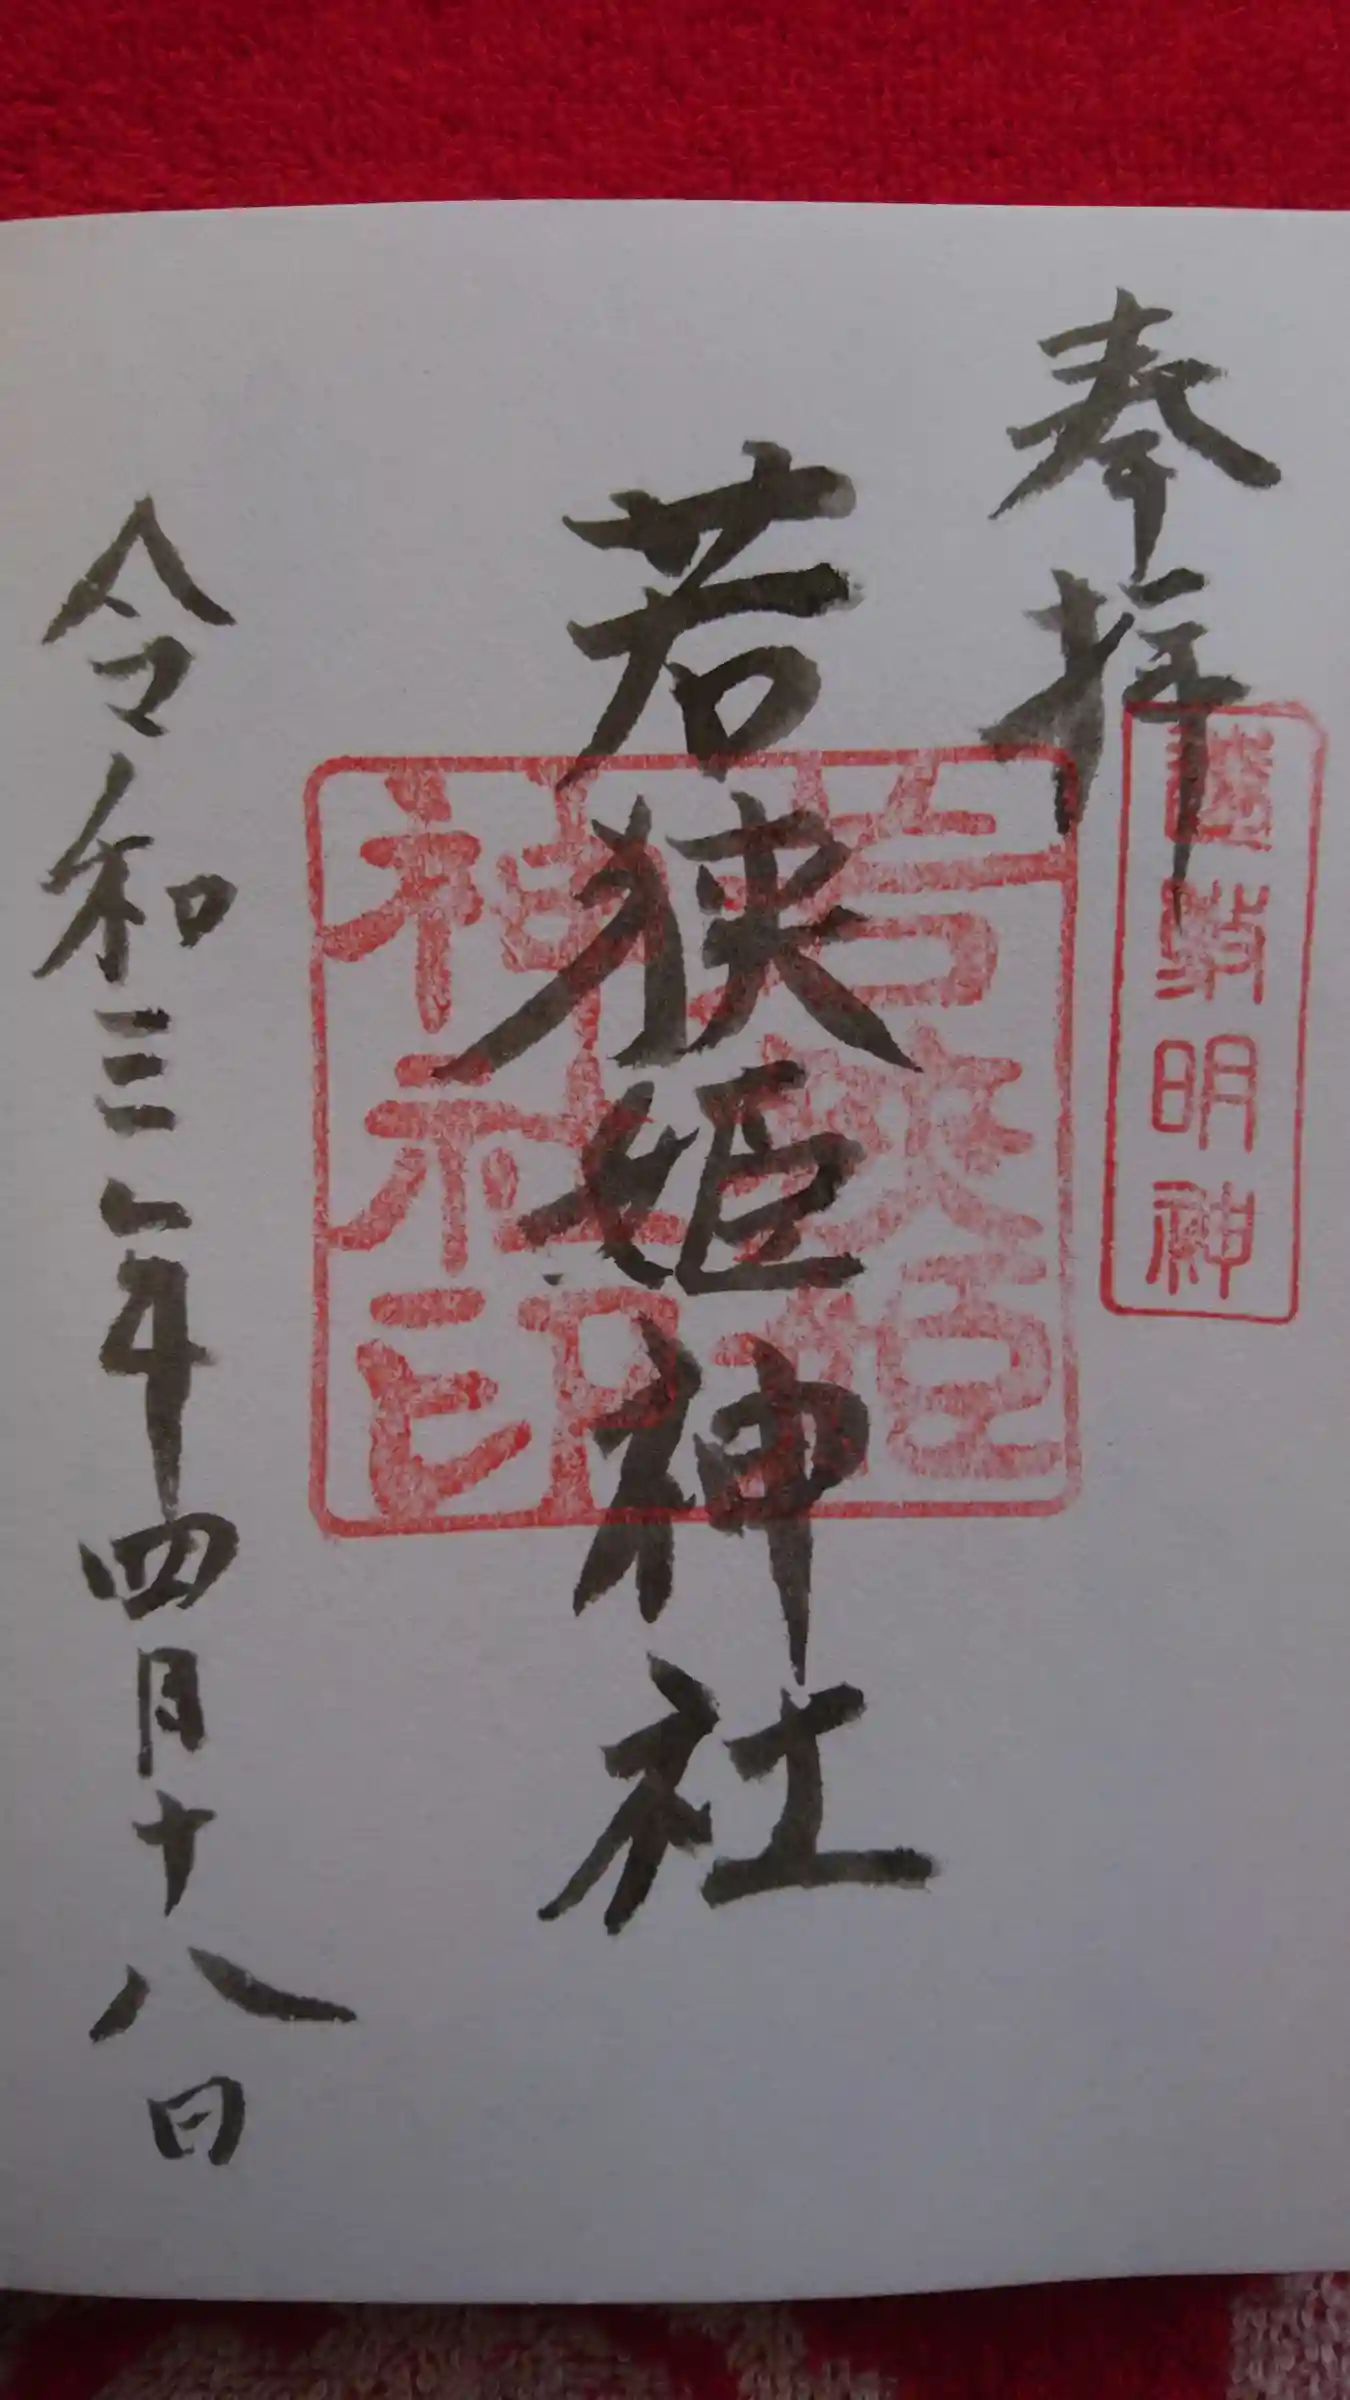 奉拝
遠敷明神
若狭姫神社
若狭姫
神社印
令和三年四月十八日